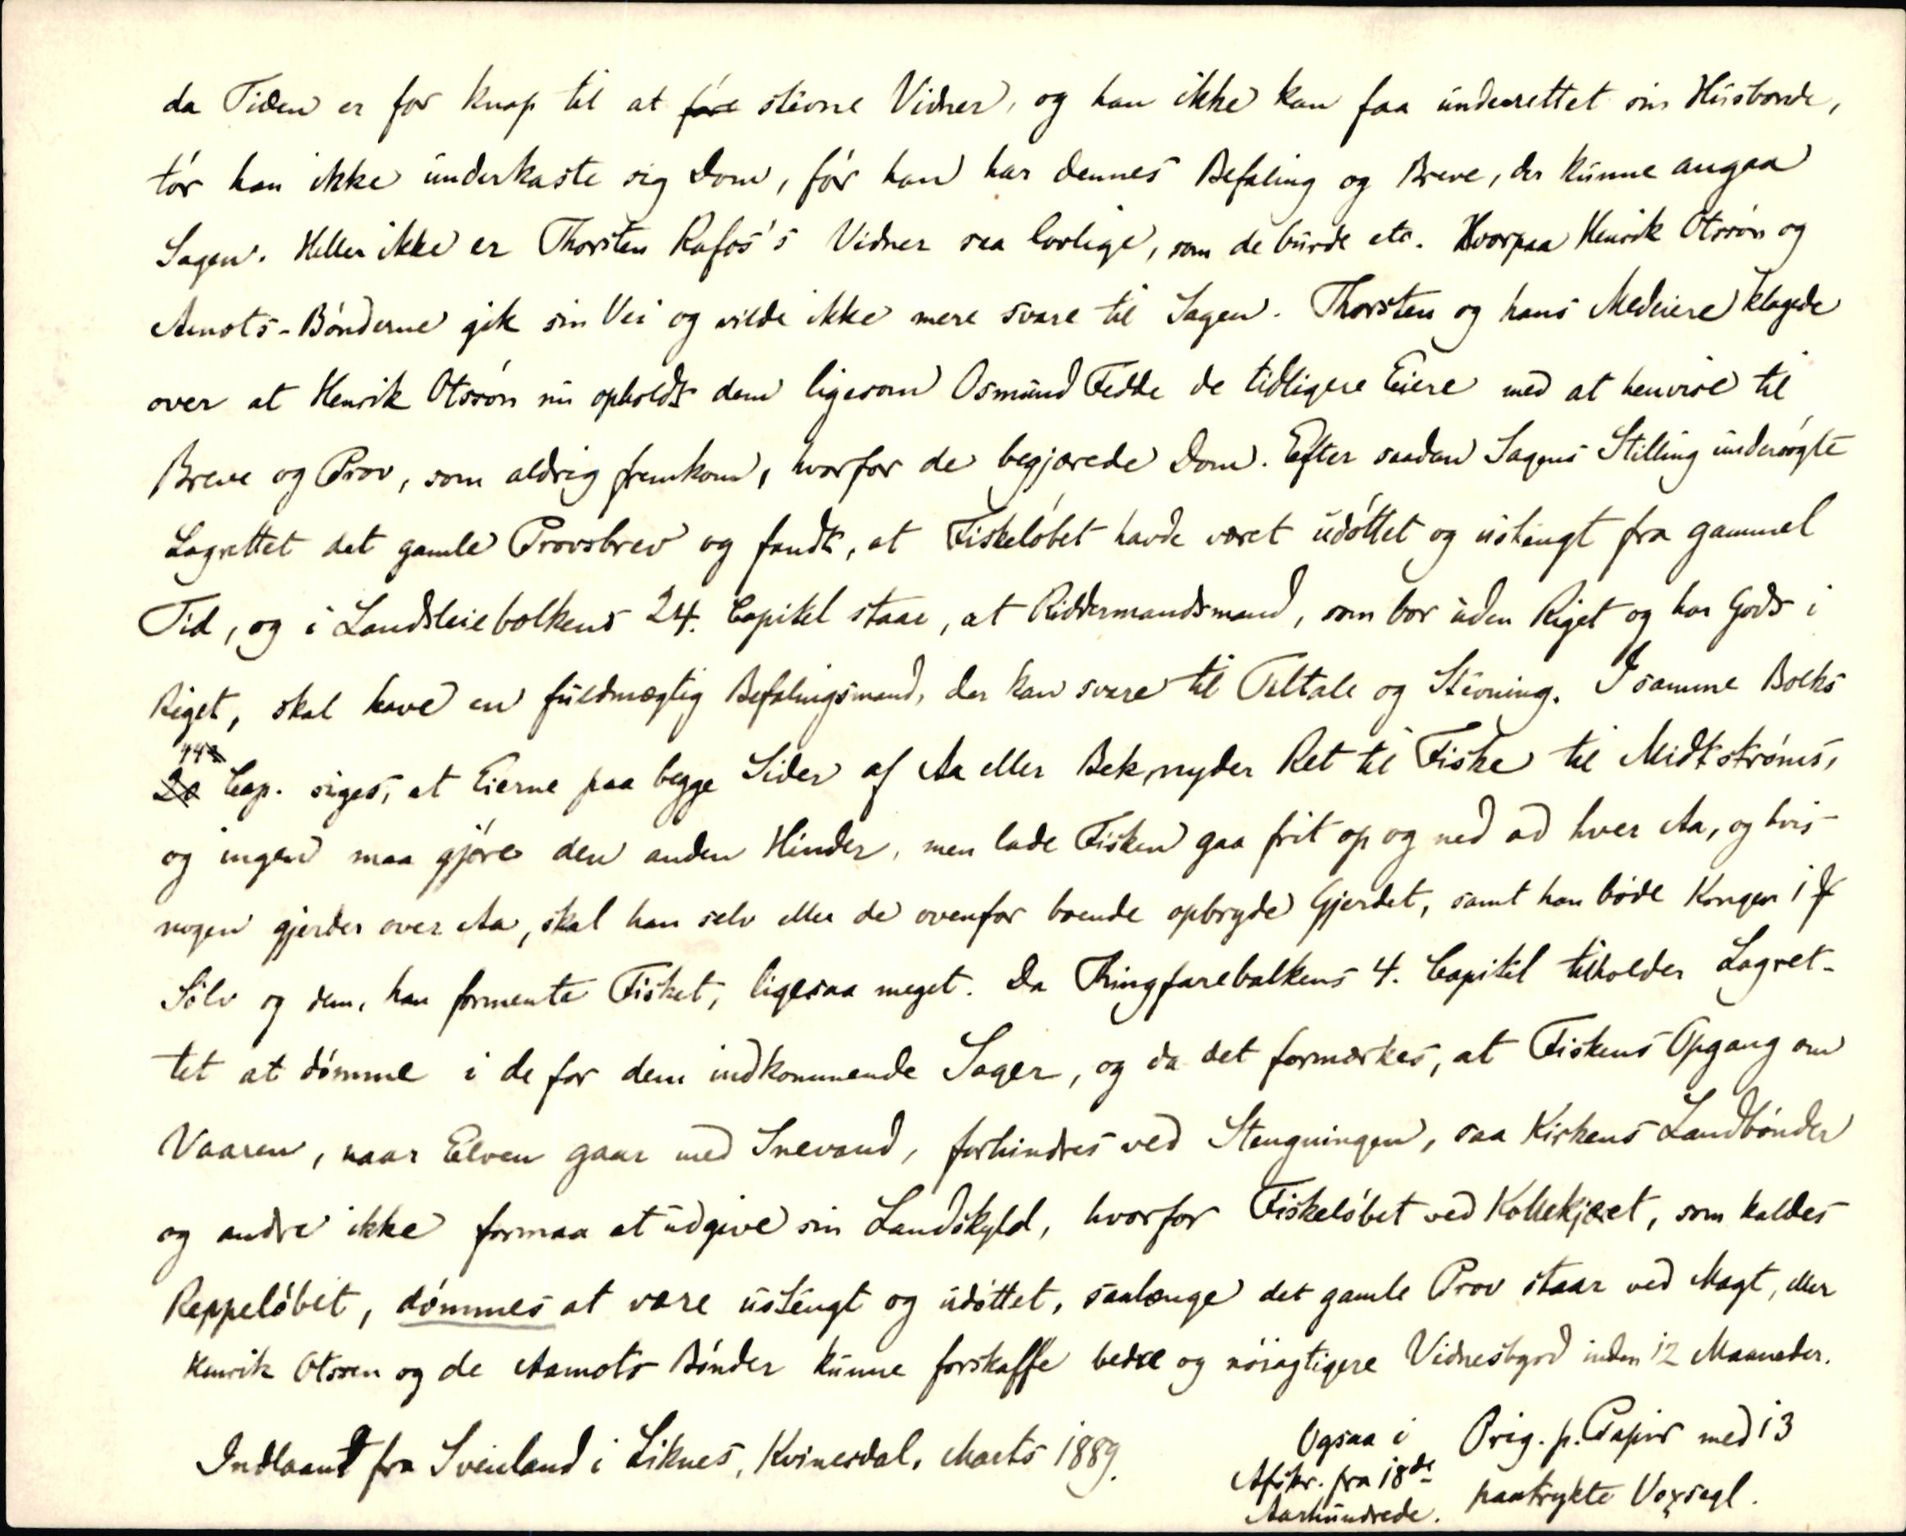 da Tiden er for knap til at føre stevne Vidner, og han ikke kan faa underrettet sin Husbonde,
tór han ikke underkaste sig Dom, fór han har dennes Befaling og Breve, der kunne angaa
Sagen. Heller ikke er Thorsten Rafos's Vidner saa lovlige, som de burde etc. Hvorpaa Henrik Otssón og
Aamots-Bónderne gik sin Vei og vilde ikke mere svare til Sagen. Thorsten og hans Medeiere klagede
over at Henrik Otssón nu opholdt dem ligesom Osmund Fedde de tidligere Eiere med at henvise til
Breve og Prov, som aldrig fremkom, hvorfor de begjærede Dom. Efter saadan Sagens Stilling undersógte
Lagrettet det gamle Provsbrev og fandt, at Fiskelóbet havde været udóttet og ustengt fra gammel
Tid, og i Landsleiebolkens 24. Capitel staar, at Riddermandsmand, som bor uden Riget og har Gods i
Riget, skal have en fuldmægtig Befalingsmand, der kan svare til Tiltale og Stevning. I samme Bolks
44
20 Cap. siges, at Eierne paa begge Sider af Aa eller Bek nyder Ret til Fiske til Midtstróms,
og ingen maa gjóre den anden Hinder, men lade Fisken gaa frit op og ned ad hver Aa, og hvis
nogen gjerder over Aa, skal han selv eller de ovenfor boende opbryde Gjerdet, samt han bóde Kongen 1
Sólv og dem, han formente Fisket, ligesaa meget. Da Thingfarebalkens 4. Capitel tilholder Lagret-
tet at dómme i de for dem indkommende Sager, og da det formærkes, at Fiskens Opgang om
Vaaren, naar Elven gaar med Snevand, forhindres ved Stengningen, saa Kirkens Landbónder
og andre ikke formaa at udgive sin Landskyld, hvorfor Fiskelóbet ved Kollekjæret, som kaldes
Reppelóbet, dómmes at være ustengt og udóttet, saalænge det gamle Prov staar ved Magt, eller
Henrik Otssen og de Aamots Bónder kunne forskaffe bedre og nóiagtigere Vidnesbyrd inden 12 Maaneder.
Indlaant fra Sveinland i Liknes, Kvinesdal, Marts 1889.
Ogsaa i
Afskr. fra 18de
Aarhundrede.
Orig. p. Papir med 13
paatrykte Voxsegl.